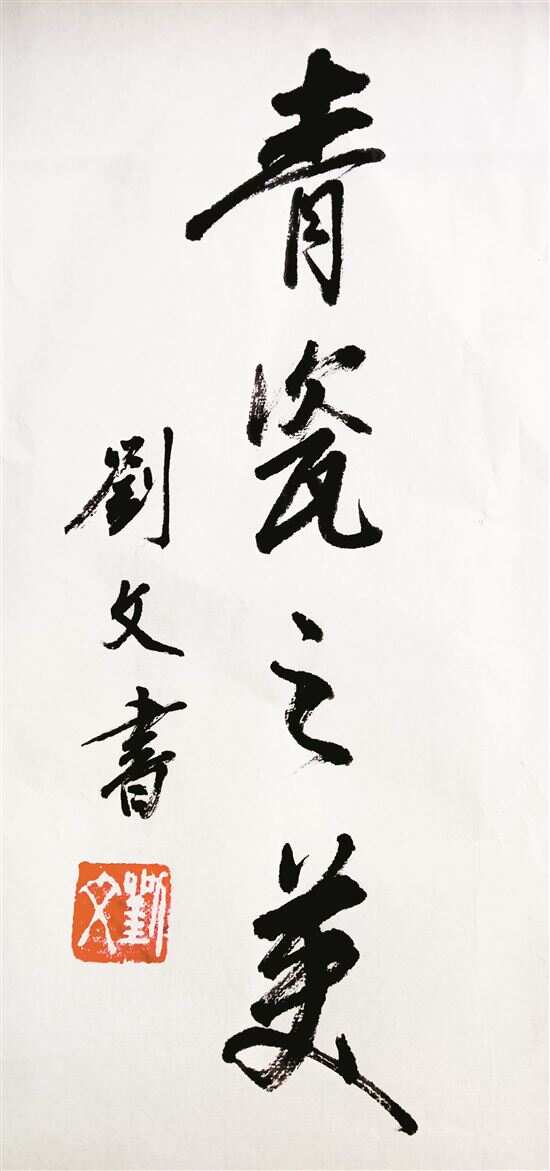 青瓷之美
劉文書
劉文